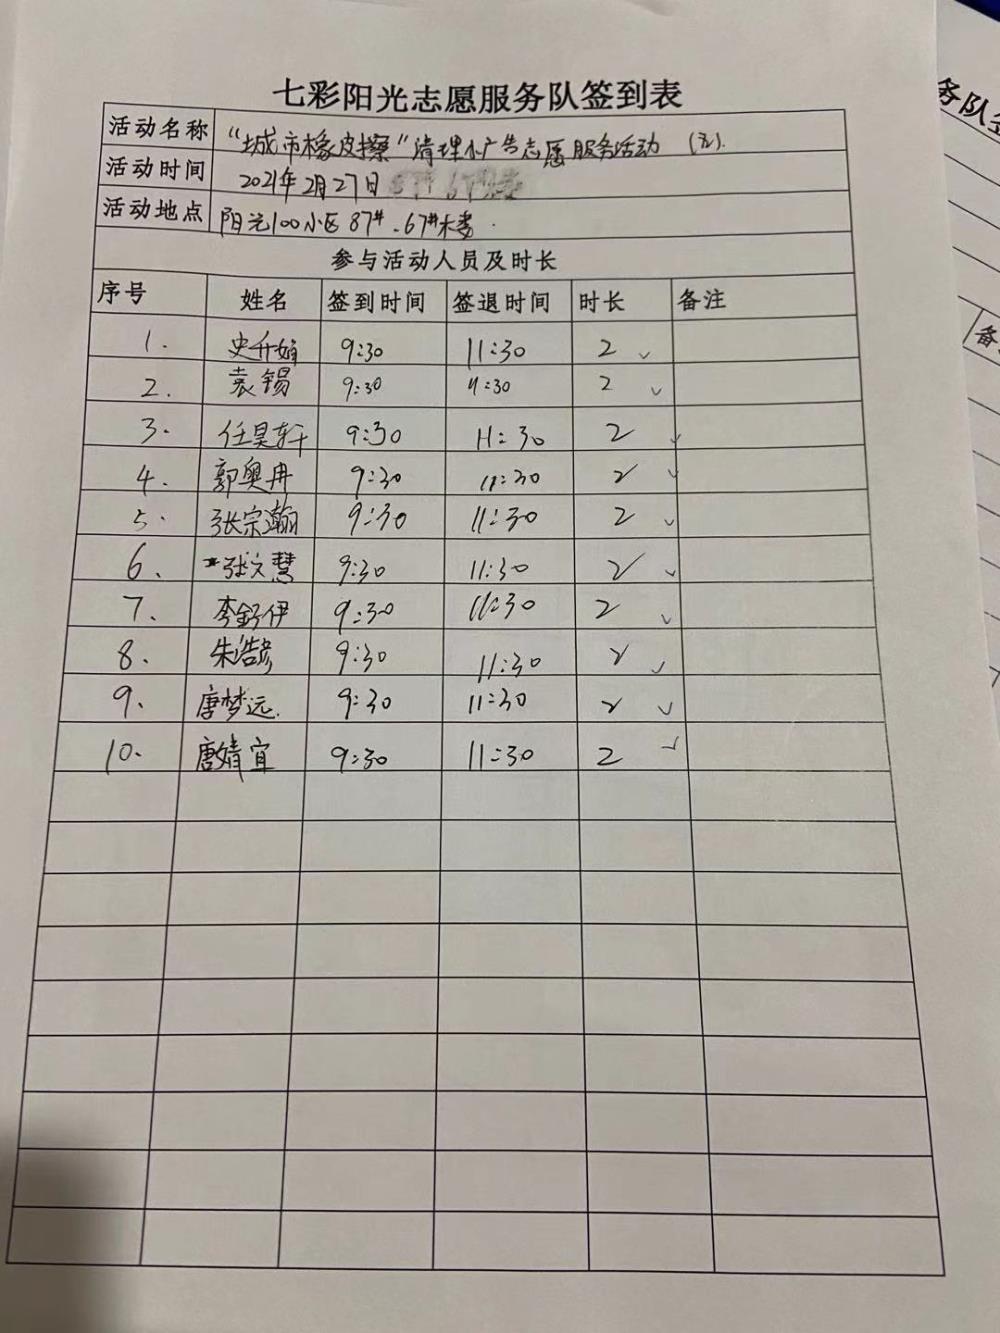 七彩阳光志愿服务队签到表
活动名称 "城市橡皮擦"清理小广告志愿服务活动
活动时间 2021年2月27日
活动地点 阳光100小区87#、67#楼
参与活动人员及时长
序号 姓名 签到时间 签退时间 时长 备注
1. 史开娟 9:30 11:30 2 ✓
2. 袁锡 9:30 11:30 2 ✓
3. 任昊轩 9:30 11:30 2 ✓
4. 郭奥冉 9:30 11:30 2 ✓
5. 张宗瀚 9:30 11:30 2 ✓
6. *张文慧 9:30 11:30 2 ✓
7. 李舒伊 9:30 11:30 2 ✓
8. 朱浩彦 9:30 11:30 2 ✓
9. 唐梦远. 9:30 11:30 2 ✓
10. 唐婧宜 9:30 11:30 2 ✓
务队签
备